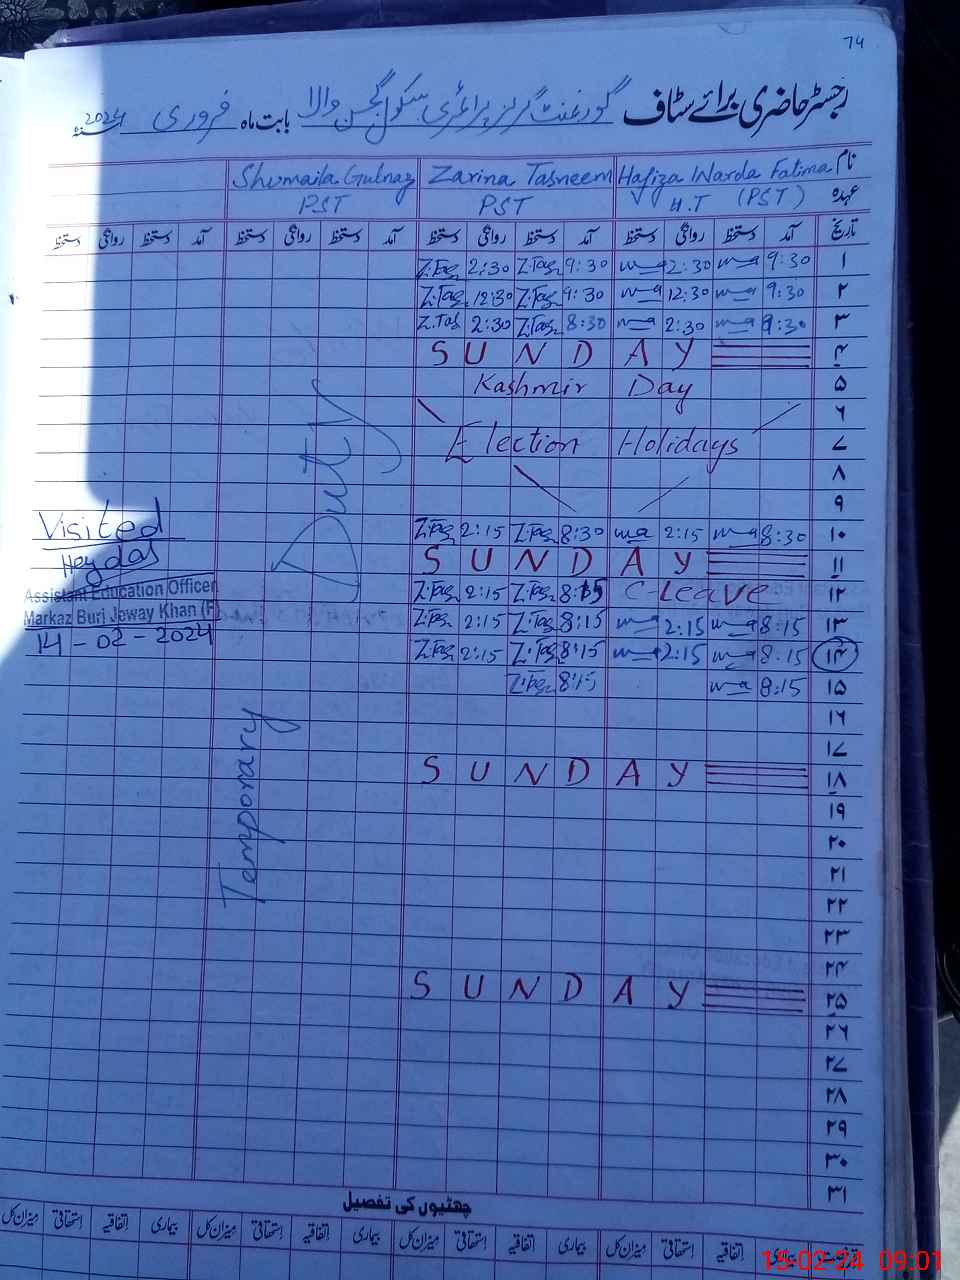 74
رجسٹر حاضری برائے سٹاف گورنمنٹ گرلز پرائمری سکول گجن والا بابت ماہ فروری سنہ 2024
نام Hafiza Warda Fatima Zarina Tasneem Shumaila Gulnaz
عہدہ H.T (PST) PST PST
تاریخ آمد دستخط روانگی دستخط آمد دستخط روانگی دستخط آمد دستخط روانگی دستخط آمد دستخط روانگی دستخط
۱ 9:30 2:30 9:30 Z.Tas 2:30 Z.Tas
۲ 9:30 12:30 9:30 Z.Tas 12:30 Z.Tas
۳ 9:30 2:30 8:30 Z.Tas 2:30 Z.Tas
۴ SUNDAY
۵ Kashmir Day
۶
۷ Election Holidays
۸
۹
۱۰ 8:30 2:15 8:30 Z.Tas 2:15 Z.Tas
۱۱ SUNDAY
۱۲ C-Leave 8:15 Z.Tas 2:15 Z.Tas
۱۳ 8:15 2:15 8:15 Z.Tas 2:15 Z.Tas
۱۴ 8:15 2:15 8:15 Z.Tas 2:15 Z.Tas
۱۵ 8:15 8:15 Z.Tas
۱۶
۱۷
۱۸ SUNDAY
۱۹
۲۰
۲۱
۲۲
۲۳
۲۴
۲۵ SUNDAY
۲۶
۲۷
۲۸
۲۹
۳۰
۳۱
Temporary Duty
Visited
Assistant Education Officer
Markaz Buri Jeway Khan (F)
14-02-2024
چھٹیوں کی تفصیل
بیماری اتفاقیہ استحقاقی میزان کل بیماری اتفاقیہ استحقاقی میزان کل بیماری اتفاقیہ استحقاقی میزان کل بیماری اتفاقیہ استحقاقی میزان کل
15-02-24 09:01